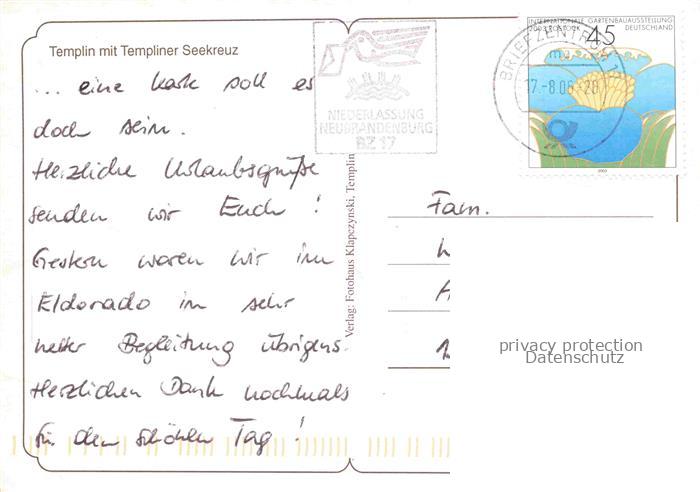 Templin mit Templiner Seekreuz
... eine Karte soll es
doch sein.
Herzliche Urlaubsgrüße
senden wir Euch !
Gestern waren wir im
Eldorado in sehr
netter Begleitung übrigens.
Herzlichen Dank nochmals
für den schönen Tag !
NIEDERLASSUNG
NEUBRANDENBURG
BZ 17
Verlag: Fotohaus Klapczynski, Templin
INTERNATIONALE GARTENBAUAUSSTELLUNG
2003 ROSTOCK DEUTSCHLAND
45
BRIEFZENTRUM 17
17.-8.06-20
2003
Fam.
privacy protection
Datenschutz